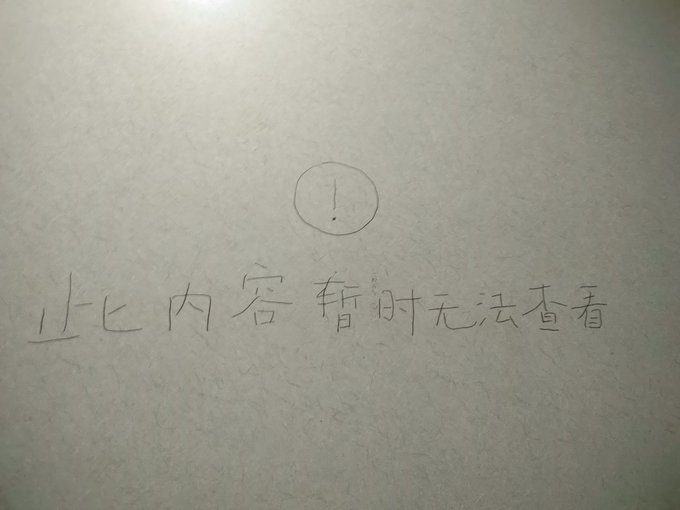 !
此内容暂时无法查看